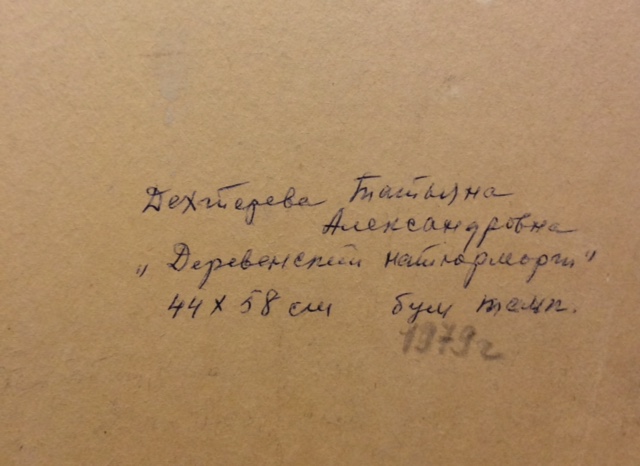 Дехтерева Татьяна
Александровна
„Деревенский натюрморт"
44 х 58 см бум темп.
1979 г